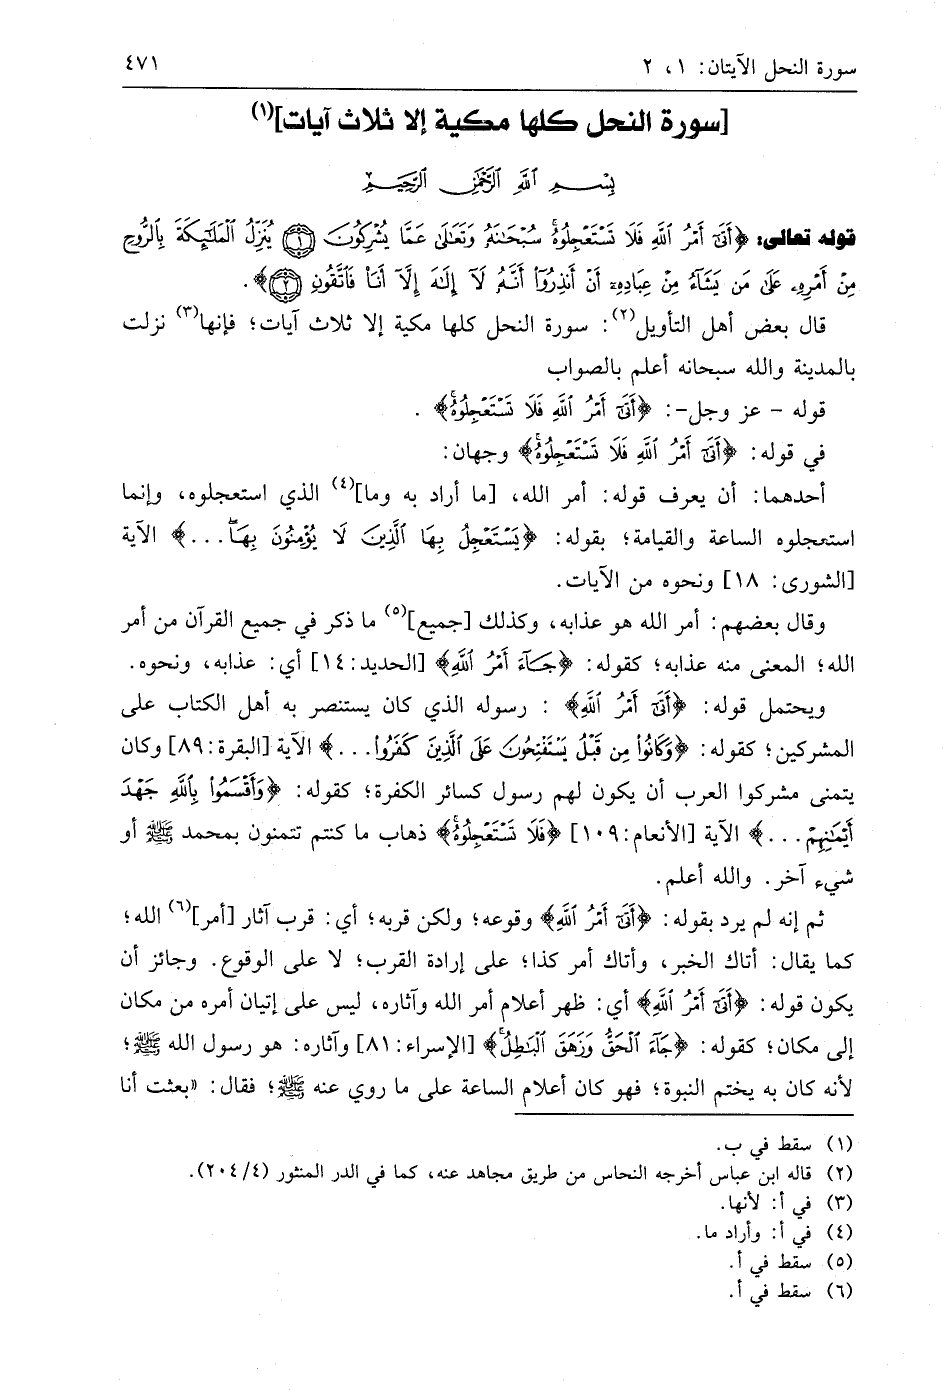 سورة النحل الآيتان: ١، ٢
٤٧١
[سورة النحل كلها مكية إلا ثلاث آيات](١)
بِسْمِ اللَّهِ الرَّحْمَٰنِ الرَّحِيمِ
قوله تعالى: ﴿أَتَىٰٓ أَمْرُ ٱللَّهِ فَلَا تَسْتَعْجِلُوهُۚ سُبْحَٰنَهُۥ وَتَعَٰلَىٰ عَمَّا يُشْرِكُونَ ۝١ يُنَزِّلُ ٱلْمَلَٰٓئِكَةَ بِٱلرُّوحِ
مِنْ أَمْرِهِۦ عَلَىٰ مَن يَشَآءُ مِنْ عِبَادِهِۦٓ أَنْ أَنذِرُوٓا۟ أَنَّهُۥ لَآ إِلَٰهَ إِلَّآ أَنَا۠ فَٱتَّقُونِ ۝٢﴾.
قال بعض أهل التأويل(٢): سورة النحل كلها مكية إلا ثلاث آيات؛ فإنها(٣) نزلت
بالمدينة والله سبحانه أعلم بالصواب
قوله - عز وجل-: ﴿أَتَىٰٓ أَمْرُ ٱللَّهِ فَلَا تَسْتَعْجِلُوهُۚ﴾ .
في قوله: ﴿أَتَىٰٓ أَمْرُ ٱللَّهِ فَلَا تَسْتَعْجِلُوهُۚ﴾ وجهان:
أحدهما: أن يعرف قوله: أمر الله، [ما أراد به وما](٤) الذي استعجلوه، وإنما
استعجلوه الساعة والقيامة؛ بقوله: ﴿يَسْتَعْجِلُ بِهَا ٱلَّذِينَ لَا يُؤْمِنُونَ بِهَاۖ...﴾ الآية
[الشورى: ١٨] ونحوه من الآيات.
وقال بعضهم: أمر الله هو عذابه، وكذلك [جميع](٥) ما ذكر في جميع القرآن من أمر
الله؛ المعنى منه عذابه؛ كقوله: ﴿جَآءَ أَمْرُ ٱللَّهِ﴾ [الحديد:١٤] أي: عذابه، ونحوه.
ويحتمل قوله: ﴿أَتَىٰٓ أَمْرُ ٱللَّهِ﴾ : رسوله الذي كان يستنصر به أهل الكتاب على
المشركين؛ كقوله: ﴿وَكَانُوا۟ مِن قَبْلُ يَسْتَفْتِحُونَ عَلَى ٱلَّذِينَ كَفَرُوا۟...﴾ الآية [البقرة:٨٩] وكان
يتمنى مشركوا العرب أن يكون لهم رسول كسائر الكفرة؛ كقوله: ﴿وَأَقْسَمُوا۟ بِٱللَّهِ جَهْدَ
أَيْمَٰنِهِمْ...﴾ الآية [الأنعام:١٠٩] ﴿فَلَا تَسْتَعْجِلُوهُۚ﴾ ذهاب ما كنتم تتمنون بمحمد ﷺ أو
شيء آخر. والله أعلم.
ثم إنه لم يرد بقوله: ﴿أَتَىٰٓ أَمْرُ ٱللَّهِ﴾ وقوعه؛ ولكن قربه؛ أي: قرب آثار [أمر](٦) الله؛
كما يقال: أتاك الخبر، وأتاك أمر كذا؛ على إرادة القرب؛ لا على الوقوع. وجائز أن
يكون قوله: ﴿أَتَىٰٓ أَمْرُ ٱللَّهِ﴾ أي: ظهر أعلام أمر الله وآثاره، ليس على إتيان أمره من مكان
إلى مكان؛ كقوله: ﴿جَآءَ ٱلْحَقُّ وَزَهَقَ ٱلْبَٰطِلُۚ﴾ [الإسراء:٨١] وآثاره: هو رسول الله ﷺ؛
لأنه كان به يختم النبوة؛ فهو كان أعلام الساعة على ما روي عنه ﷺ؛ فقال: «بعثت أنا
(١) سقط في ب.
(٢) قاله ابن عباس أخرجه النحاس من طريق مجاهد عنه، كما في الدر المنثور (٢٠٤/٤).
(٣) في أ: لأنها.
(٤) في أ: وأراد ما.
(٥) سقط في أ.
(٦) سقط في أ.